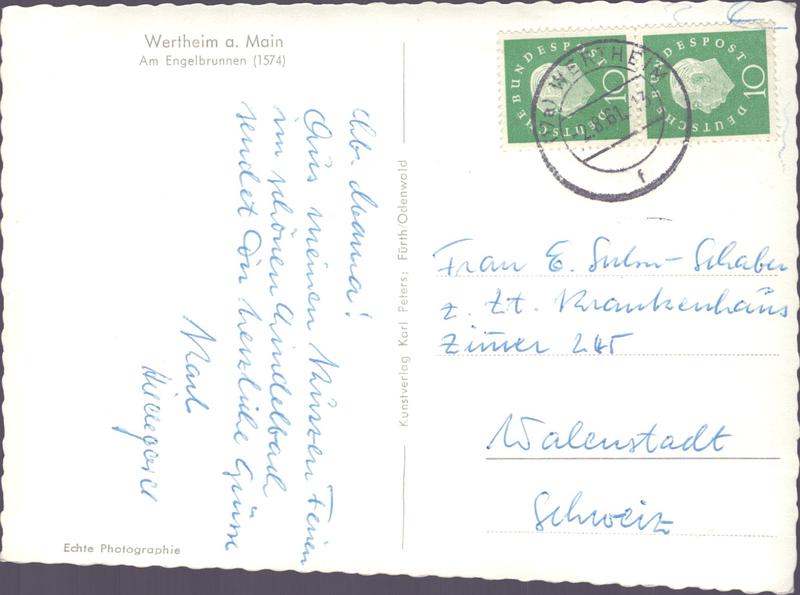 Wertheim a. Main
Am Engelbrunnen (1574)
Lb. Mama!
Aus meinen kurzen Ferien
im schönen Lindelbach
sendet Dir herzliche Grüsse
Karl
Hildegard
Echte Photographie
Kunstverlag Karl Peters; Fürth/Odenwald
DEUTSCHE BUNDESPOST 10
DEUTSCHE BUNDESPOST 10
WERTHEIM
-2.8.61.-13
f
Frau E. Sulm-Schaber
z. Zt. Krankenhaus
Zimer 245
Walenstadt
Schweiz